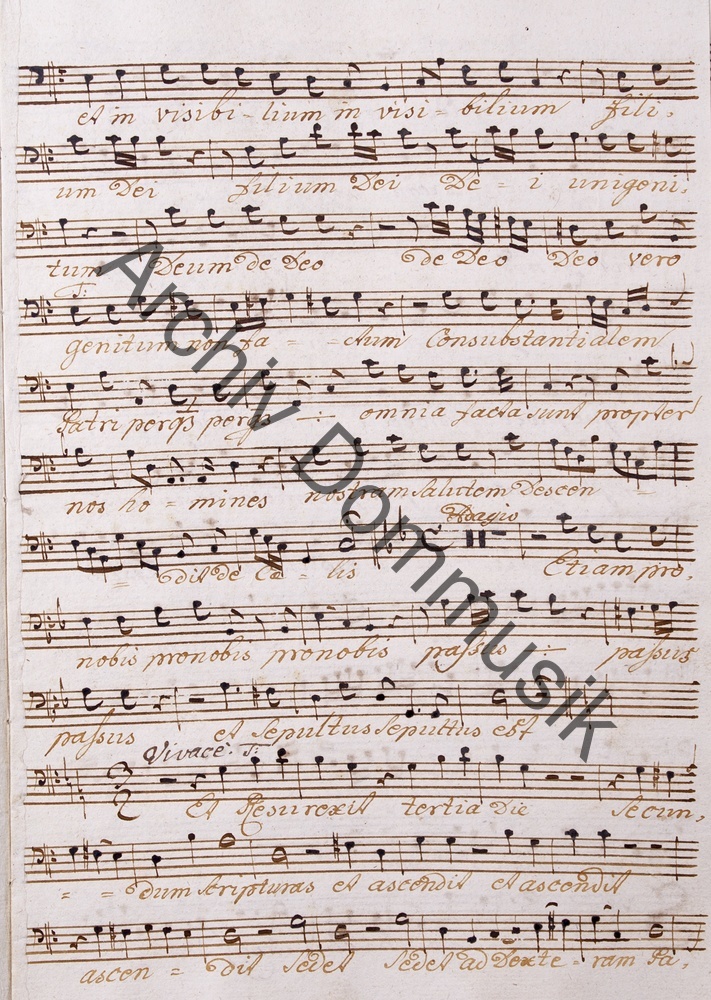 et in visibi - lium in visi = bilium fili,
um Dei filium Dei De = i unigeni,
tum Deum de Deo de Deo Deo vero
genitum non fa = = ctum Consubstantialem
Patri per perq ÷ omnia facta sunt propter
nos ho = mines nostram Salutem Descen =
Adagio
= dit de Cæ = lis Etiam pro,
nobis pronobis pronobis passus ÷ passus
passus et Sepultus Sepultus est
Vivace: S:
Et Resurexit tertia Die Secun,
= = dum Scripturas et ascendit et ascendit
ascen = dit Sedet Sedet ad Dexte = ram Pa,
Archiv Dommusik